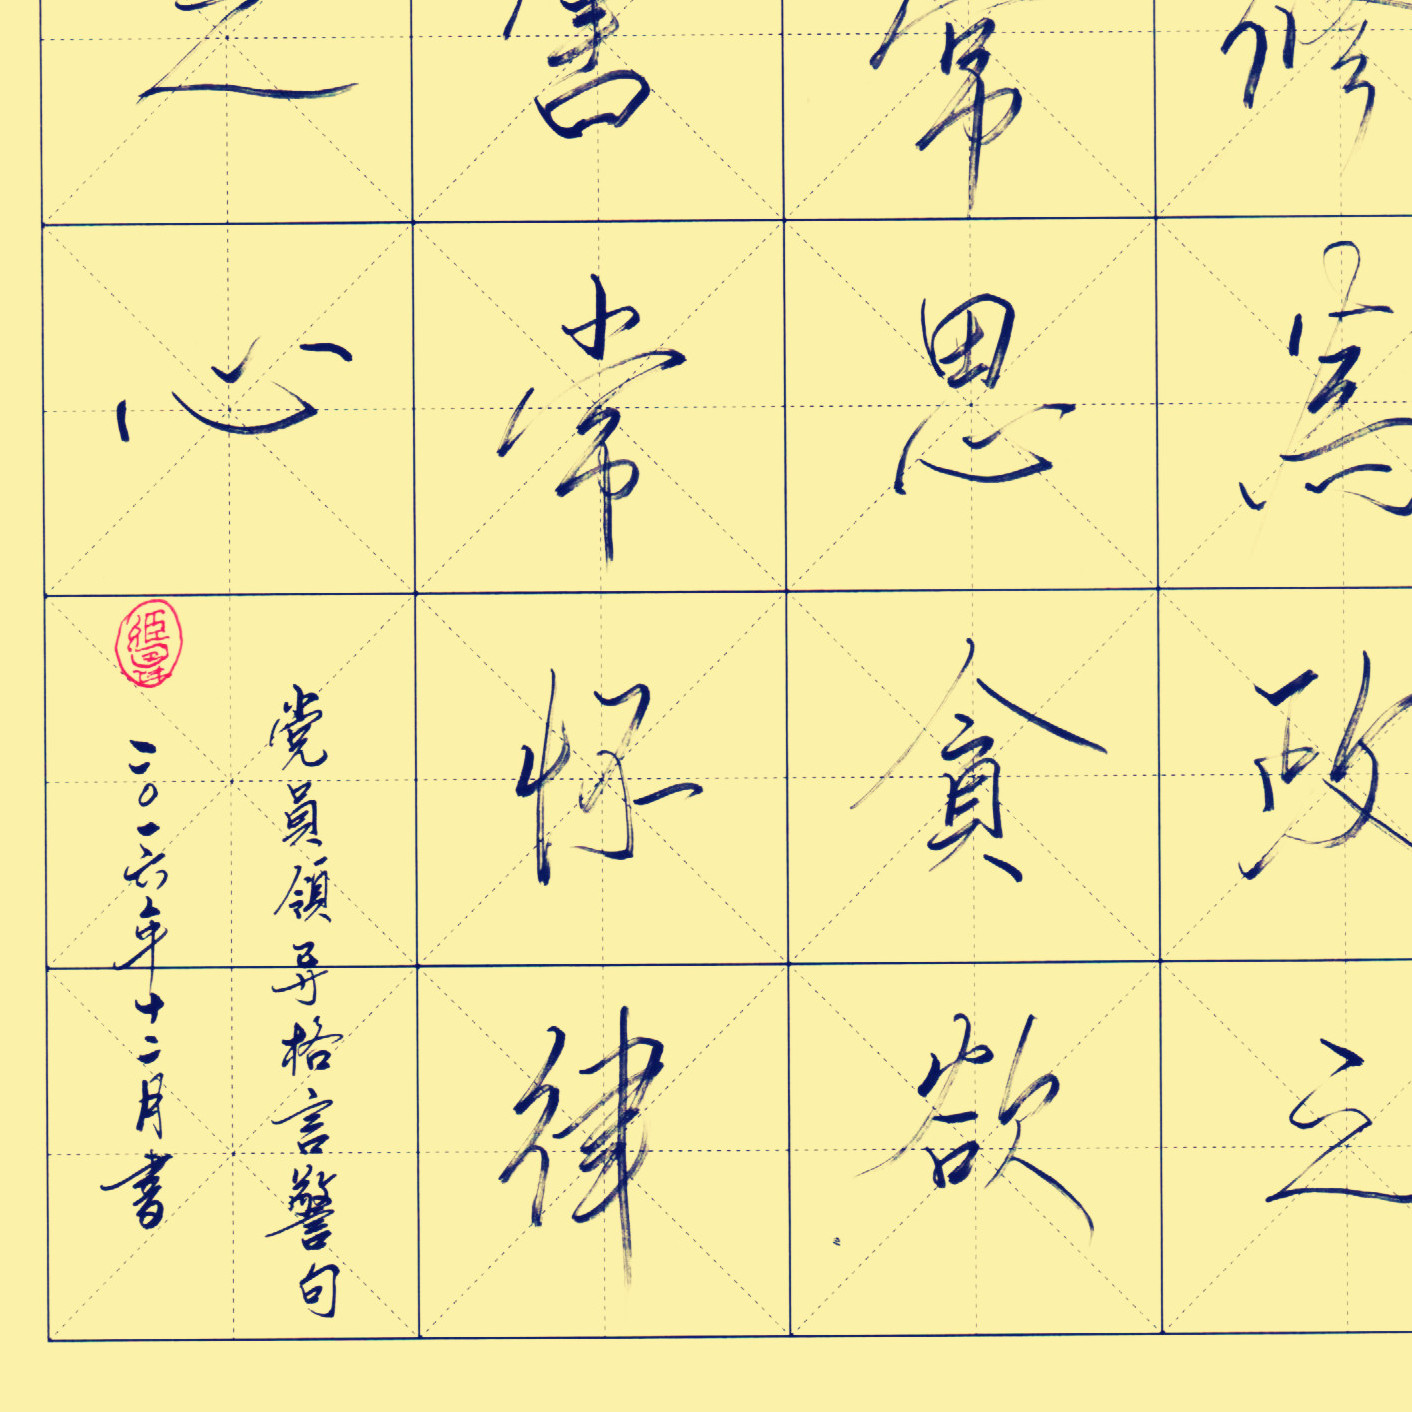 修為政之
常思貪欲
害常怀律
之心
党員領导格言警句
二〇一六年十二月書